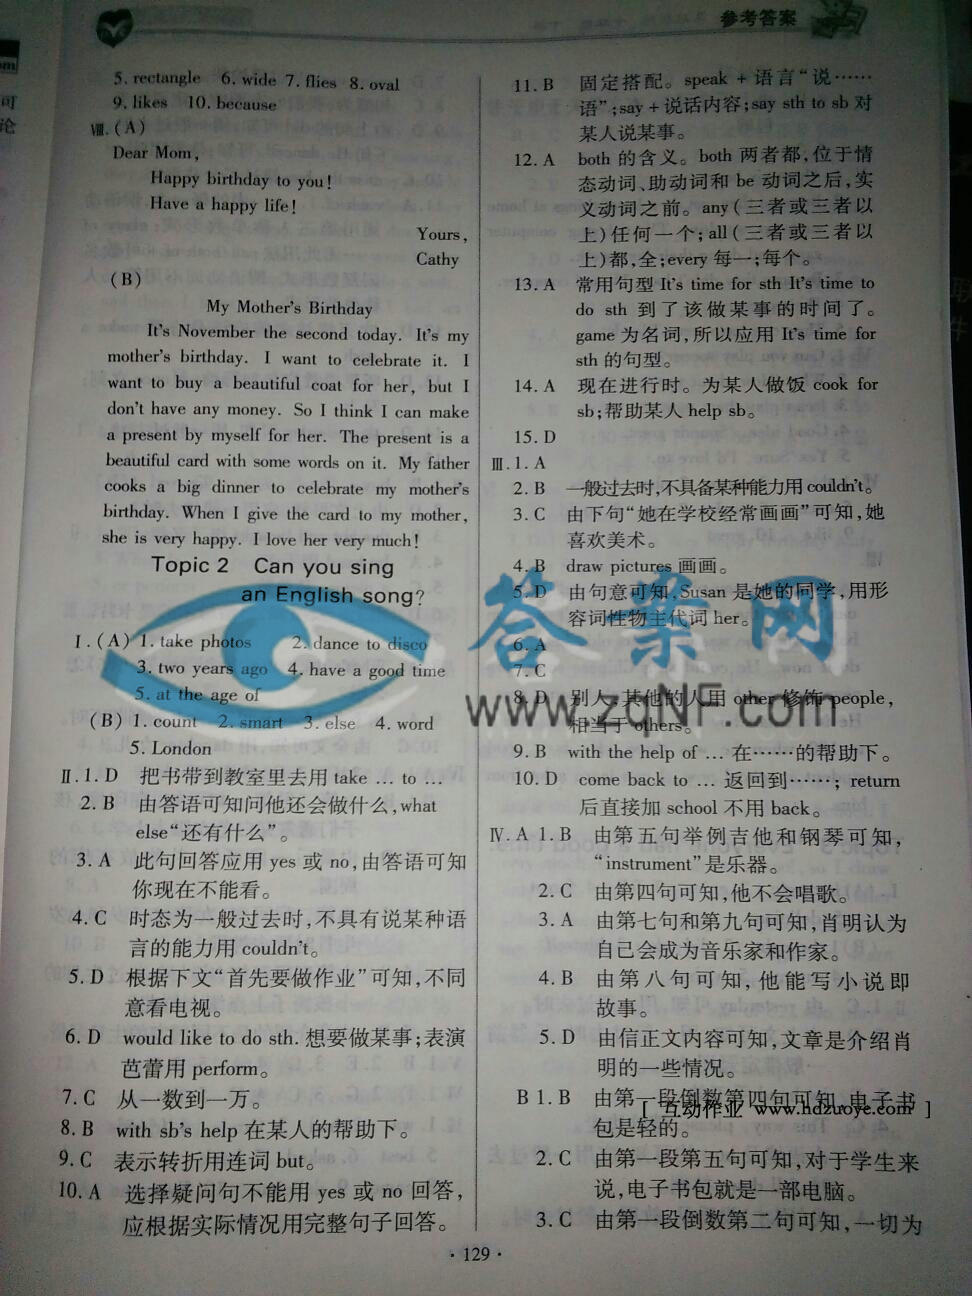 参考答案
5. rectangle 6. wide 7. flies 8. oval
9. likes 10. because
Ⅷ. (A)
Dear Mom,
Happy birthday to you!
Have a happy life!
Yours,
Cathy
(B)
My Mother's Birthday
It's November the second today. It's my
mother's birthday. I want to celebrate it. I
want to buy a beautiful coat for her, but I
don't have any money. So I think I can make
a present by myself for her. The present is a
beautiful card with some words on it. My father
cooks a big dinner to celebrate my mother's
birthday. When I give the card to my mother,
she is very happy. I love her very much!
Topic 2 Can you sing
an English song?
Ⅰ. (A) 1. take photos 2. dance to disco
3. two years ago 4. have a good time
5. at the age of
(B) 1. count 2. smart 3. else 4. word
5. London
Ⅱ. 1. D 把书带到教室里去用 take … to …
2. B 由答语可知问他还会做什么,what
else“还有什么”。
3. A 此句回答应用 yes 或 no,由答语可知
你现在不能看。
4. C 时态为一般过去时,不具有说某种语
言的能力用 couldn't。
5. D 根据下文“首先要做作业”可知,不同
意看电视。
6. D would like to do sth. 想要做某事;表演
芭蕾用 perform。
7. C 从一数到一万。
8. B with sb's help 在某人的帮助下。
9. C 表示转折用连词 but。
10. A 选择疑问句不能用 yes 或 no 回答,
应根据实际情况用完整句子回答。
11. B 固定搭配。speak + 语言“说……
语”;say + 说话内容;say sth to sb 对
某人说某事。
12. A both 的含义。both 两者都,位于情
态动词、助动词和 be 动词之后,实
义动词之前。any(三者或三者以
上)任何一个;all(三者或三者以
上)都,全;every 每一;每个。
13. A 常用句型 It's time for sth It's time to
do sth 到了该做某事的时间了。
game 为名词,所以应用 It's time for
sth 的句型。
14. A 现在进行时。为某人做饭 cook for
sb;帮助某人 help sb。
15. D
Ⅲ. 1. A
2. B 一般过去时,不具备某种能力用 couldn't。
3. C 由下句“她在学校经常画画”可知,她
喜欢美术。
4. B draw pictures 画画。
5. D 由句意可知,Susan 是她的同学,用形
容词性物主代词 her。
6. A
7. C
8. D 别人,其他的人用 other 修饰 people,
相当于 others。
9. B with the help of … 在……的帮助下。
10. D come back to … 返回到……; return
后直接加 school 不用 back。
Ⅳ. A 1. B 由第五句举例吉他和钢琴可知,
“instrument”是乐器。
2. C 由第四句可知,他不会唱歌。
3. A 由第七句和第九句可知,肖明认为
自己会成为音乐家和作家。
4. B 由第八句可知,他能写小说即
故事。
5. D 由信正文内容可知,文章是介绍肖
明的一些情况。
B 1. B 由第一段倒数第四句可知,电子书
包是轻的。
2. C 由第一段第五句可知,对于学生来
说,电子书包就是一部电脑。
3. C 由第一段倒数第二句可知,一切为
· 129 ·
答案网
www.zqNF.com
[ 互动作业 www.hdzuoye.com ]